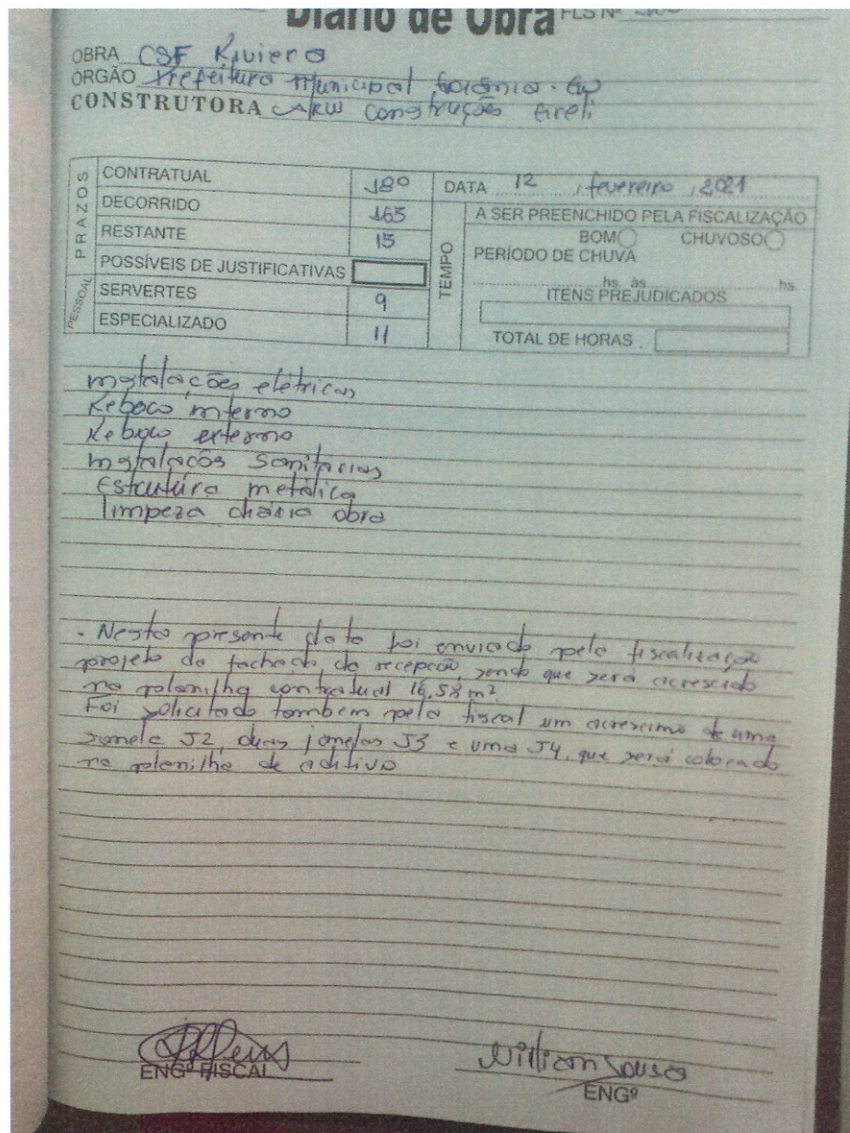 Diário de Obra FLS Nº
OBRA CSF Riviera
ÓRGÃO Prefeitura Municipal Goiânia - Go
CONSTRUTORA Construções Eireli
PRAZOS
CONTRATUAL 180
DECORRIDO 165
RESTANTE 15
POSSÍVEIS DE JUSTIFICATIVAS
PESSOAL
SERVERTES 9
ESPECIALIZADO 11
DATA 12 , fevereiro , 2021
TEMPO
A SER PREENCHIDO PELA FISCALIZAÇÃO
BOM CHUVOSO
PERÍODO DE CHUVA
hs. às hs.
ITENS PREJUDICADOS
TOTAL DE HORAS
instalações elétricas
Reboco interno
Reboco externo
instalações Sanitárias
Estrutura metálica
limpeza diária obra
- Nesta presente data foi enviado pela fiscalização
projeto da fachada da recepção, sendo que será acrescido
na planilha contratual 16,58 m².
Foi solicitado também pela fiscal um acrescimo de uma
janela J2, duas janelas J3 e uma J4, que será colocado
na planilha de aditivo
ENGº FISCAL
Willian Sousa
ENGº